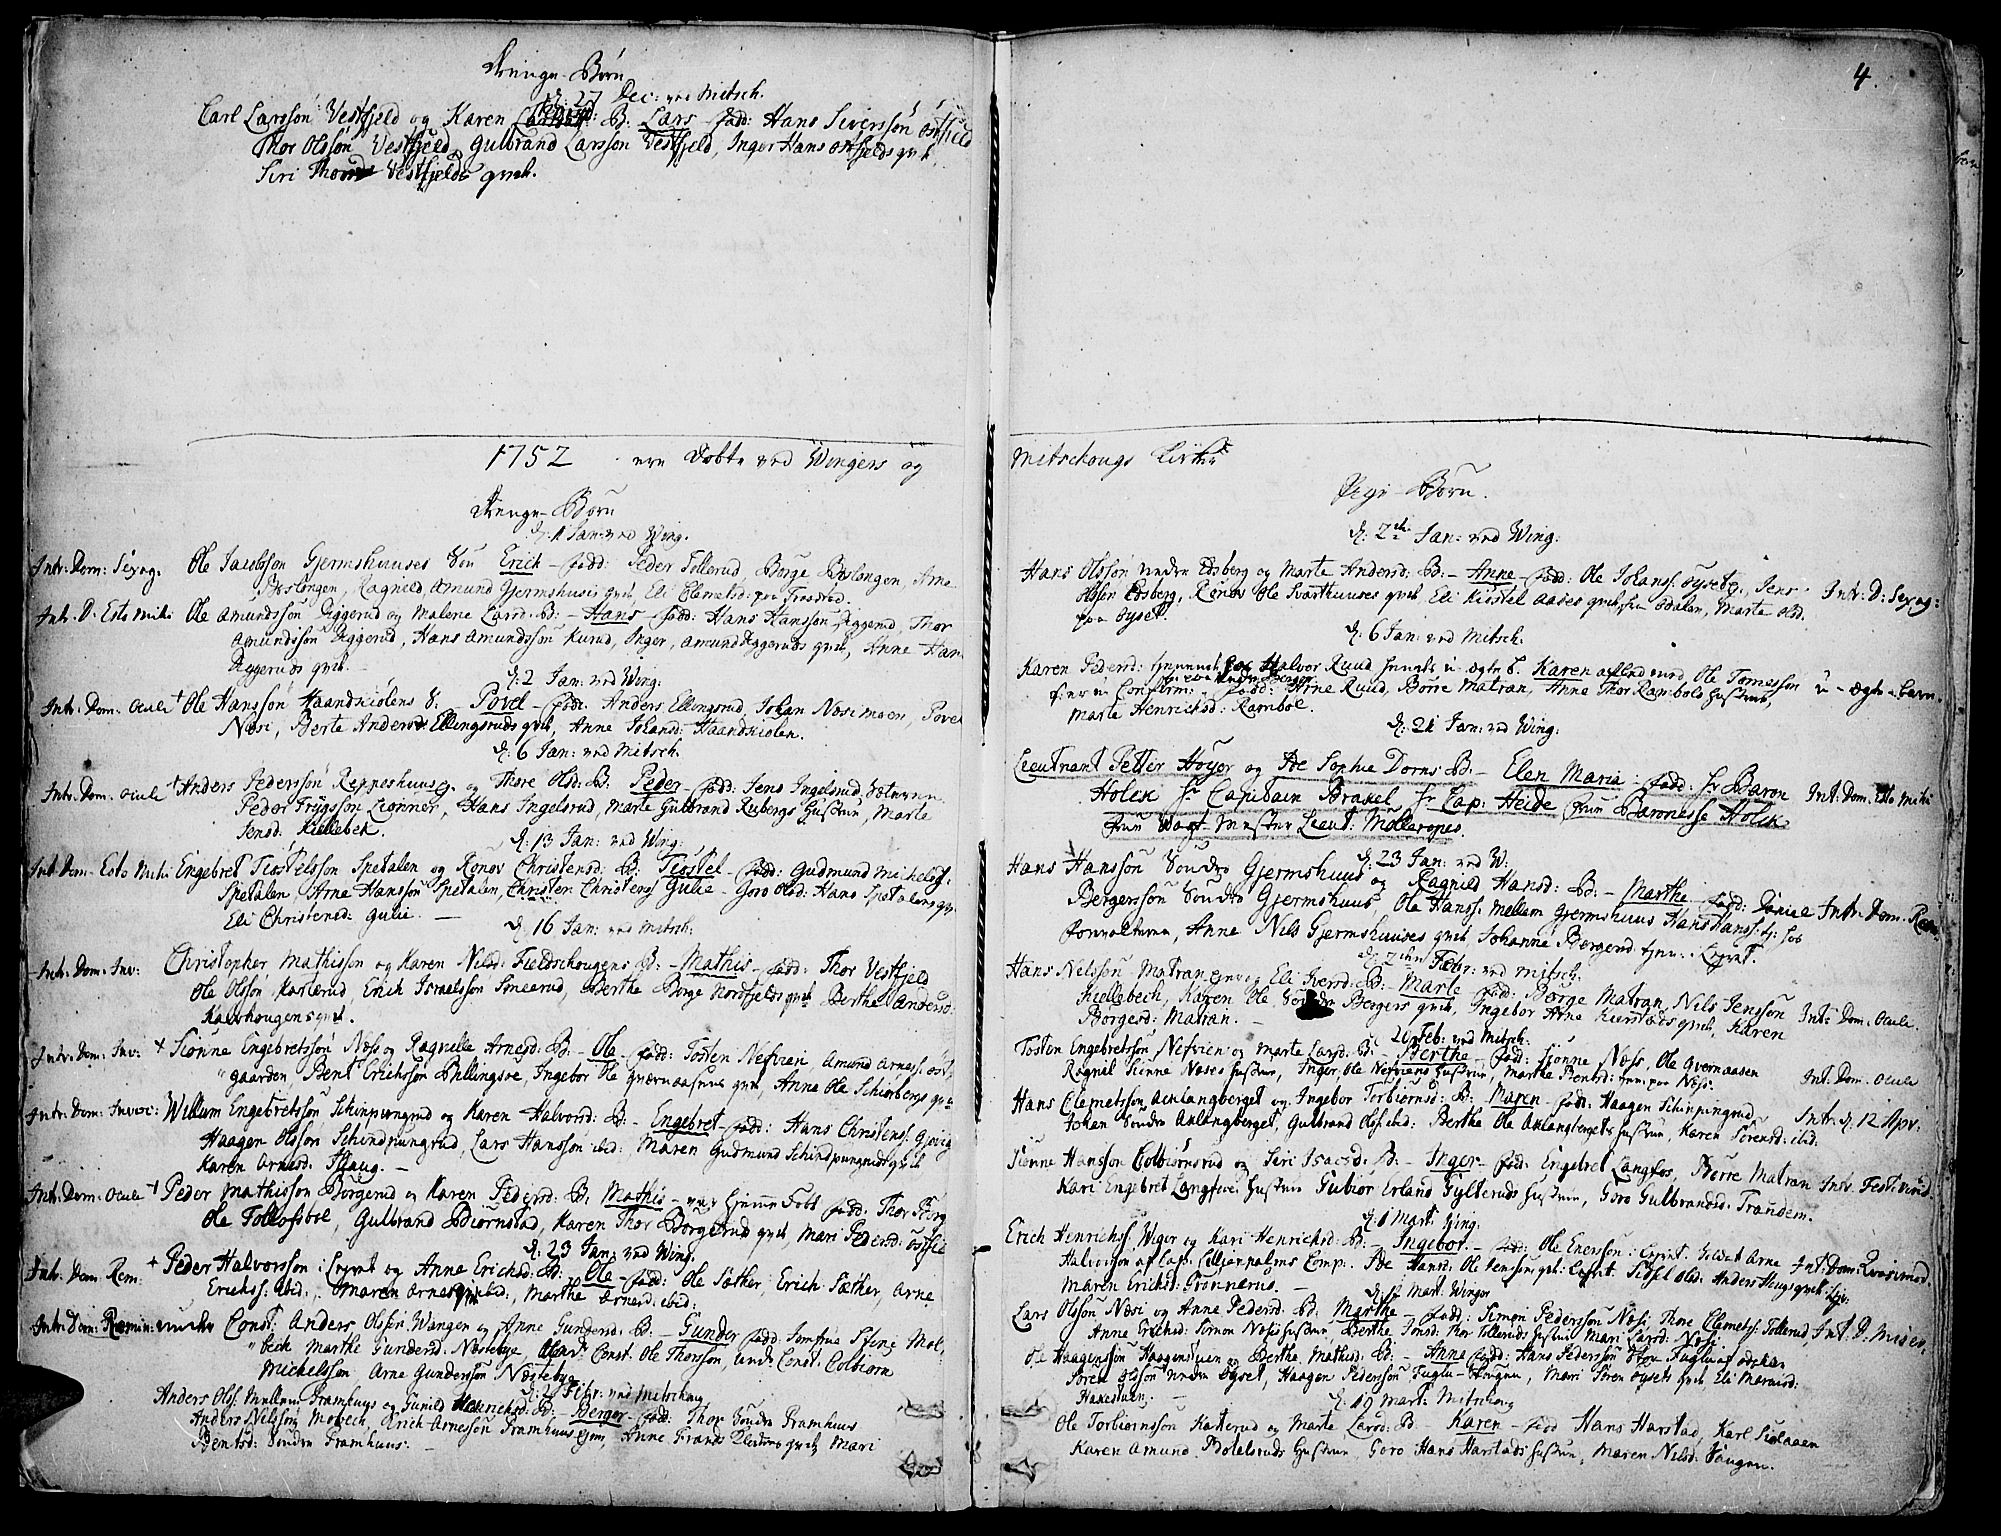 Drenge-Børn
d. 27 Dec: ved Mitsch.
Carl Larssøn Vestfjeld og Karen B: Lars - fadd: Hans Siverssøn Østfield
Thor Olssøn Vestfjeld, Gulbrand Larssøn Vestfjeld, Inger Hans Østfields qvih,
Siri Thoers Vestfjelds qvih.
1752 ere Døbte ved Wingers og
Drenge-Børn
d. 1 Jan: ved Wing.
Intr: Dom: Sexag. Ole Jacobsøn Gjermshuuses Søn Erich - fadd: Peder Tollerud, Børge Børslongen, Arne
Børslongen, Ragnild Amund Gjermshuses qvih, Eli Clemetsd:
Intr: D. Esto Mihi Ole Amundssøn Riggerud og Malene Larsd: B: - Hans - fadd: Hans Hanssøn Riggerud, Thor
Amundssøn Riggerud, Hans Amundssøn Kurud, Inger Amund Riggeruds qvih, Anne Hans
Riggeruds qvih. -
d. 2 Jan: ved Wing:
Intr: Dom: Oculi + Ole Hanssøn Haandkiølens S. Povel - fadd: Anders Ellingsrud, Johan Næsimoen, Povel
Næsi, Berte Anders Ellingsruds qvih, Anne Johansd: Haandkiølen.
d. 6 Jan: ved Mitsch.
Intr: Dom. Oculi + Anders Pederssøn Reppeshuuseg. og Thore Olsd: B: Peder - fadd: Jens Ingelsrud,
Peder Trygssøn Liønner, Hans Ingelsrud, Marte Gulbrand Rebergs Hustrue, Marte
Jensd: Kiellebek.
d. 13 Jan: ved Wing:
Int: Dom - Esto Mihi Engebret Tiøstelssøn Spetalen og Rønov Christensd: B: Tiøstel - fadd: Gudmund Michelss:
Spetalen, Arne Hanssøn Spetalen, Christen Christenss Gulie - Goro Olsd: Hans Spetalens qvi
Eli Christensd: Gulie. -
d. 16 Jan: ved Mitsch:
Intr: Dom: Inv: Christopher Mathissøn og Karen Nilsd: Fieldschougens B: - Mathis - fadd: Thor Vestfjeld
Ole Olssøn Karterud, Erich Israelssøn Smeerud, Berthe Børge Nordfjelds qvih Berthe Andersd:
Kalshougens qvih.
Intr: Dom: Inv: + Siønne Engebretssøn Næss og Ragnille Arnesd: B: - Ole - fadd: Tosten Nefvien, Amund Arness: Øst,
gaarden, Bent Erichssøn Billingsoe, Ingebor Ole Qværnaasens qvih, Anne Ole Schinbergs qvi
Intr: Dom: Invoc: Willum Engebretssøn Schinpungrud og Karen Halvorsd: B: - Engebret - fadd: Hans Christenss: Gjøvig
Haagen Olssøn Schindpungrud, Lars Hanssøn ibid: Maren Gudmund Schindpungruds qvih
Karen Arnesd: Skaug. -
Intr: Dom: Oculi + Peder Mathissøn Borgerud og Karen Pedersd: B: Mathis - var hiemme Døbt fadd: Thor Borg
Ole Tollofsboe, Gulbrand Biørnstad, Karen Thor Borgeruds qvih, Mari Pedersd:
d. 23 Jan: ved Wing.
Intr: Dom: Rem: + Peder Halvorssøn i Leyret og Anne Erichsd: B: Ole - fadd: Ole Sæther, Erich Sæther, Arne
Erichss: ibid:, Maren Arnes qvi ibid: Marthe Arnesd: ibid:
Intr: Dom: Remin: under Const: Anders Olssøn Wangen og Anne Gundersd: B: - Gunder - fadd: Jomfrue Stine Mol,
bech, Marthe Gundersd: Næstebye, Const: Ole Thorssøn, Const: Colbiørn
Michelssøn, Arne Gunderssøn Næstebye.
d. 2 Febr: ved Mitschoug
Anders Olss: Mellum Framhuus og Gunild Henrichsd: B: Berger - fadd: Thor Søndre Framhuus
Anders Nilssøn Mobech, Erich Arnessøn Framhuus, Anne qvih Mari
Bentsd: Søndre Framhuus.
4
Mitschougs Kirker
Pige-Børn.
d. 2den Jan: ved Wing:
Hans Olssøn under Edsberg og Marte Andersd: B: - Anne - fadd: Ole Johanss: Øyset, Jens Intr: D: Sexag:
Olssøn Edsberg, Rønov Ole Svarthuuses qvih, Eli Kirstel Aases qvih fra Odalen, Marte Olsd.
paa Øyset.
d. 6 Jan: ved Mitsch:
Karen Pedersd: tjenende hos Halvor Ruud hendes u-ægte B. Karen aflet med Ole Tomessøn u-ægte-barn.
fadd: Arne Ruud, Børre Matran, Anne Thor Rambøls Hustrue,
Marte Henrichsd: Ramboe.
d. 21 Jan: ved Wing:
Lieutnant Petter Høyer og Ide Sophie Dorns B: - Elen Maria - fadd: hr Baron Int: Dom. Esto Mihi
Holck hr Capitain Brakel hr Cap: Heide fruu Baronesse Holck
fruu Vagt-Mester Lieut: Mølleropes.
d. 23 Jan: ved W:
Hans Hanssøn Søndre Gjermshuus og Ragnild Hansd: B: - Marthe - fadd: Daniel Intr: Dom. Rem:
Bergerssøn Søndre Gjermshuus Ole Hanss: Mellum Gjermshuus Hans Hanss: tj: hos
Forvalteren, Anne Nils Gjermshuuses qvih Johanne Bergersd: tjen: i Leyret.
d. 2den Febr: ved Mitsch:
Hans Nilssøn Matran og Eli Iversd: B: - Marte - fadd: Børge Matran, Nils Jenssøn Int: Dom: Oculi
Kiellebech, Karen Ole Søndre Bergers qvih, Ingebor Arne Kierstads qvih, Karen
Børgesd: Matran. -
2 Feb: ved Mitsch:
Tosten Engebretssøn Nefvien og Marte Larsd: B: - Berthe - fadd: Siønne Næss, Ole Qvernaasen Int. Dom. Oculi
Ragnil Siønne Næses Hustrue, Inger Ole Nefviens Hustrue, Marthe Bentsd: paa Næss.
Hans Clemetssøn Aaklangberget og Ingebor Torbiørnsd: B: Maren - fadd: Haagen Schinpungrud, Intr: d. 12 Apr.
Johan Søndre Aklangberget, Gulbrand Olss: ibid: Berthe Ole Aklangbergets Hustrue, Karen Sørensd: ibid:
Siønne Hanssøn Colbiørnsrud og Siri Isacsd: B: - Inger - fadd: Engebret Langfos, Børre Matran Intr: Fest: Virid:
Kari Engebret Langfoses Hustrue Gubior Erland Gylteruds Hustrue, Goro Gulbrandsd: Trandem.
d. 1 Mart: Wing.
Erich Henrichss: Wiger og Kari Henrichsd: B: - Ingebor - fadd: Ole Enerssøn i Leyret. Soldat Arne Int: Dom: Qvasimod.
Halvorssøn af Cap: Lilljenpalms Comp. Ide Hansd: Ole Jenssøns qvih: Leyret. Sidsel Olsd:
Maren Erichsd: Grønnerud. -
d. 12 Mart: Winger
Lars Olssøn Næsi og Anne Pedersd: B: Marthe - fadd: Simon Pederssøn Næsi, Thore Clemetss: Tollerud, Int. D. Miser.
Anne Erichsd: Simon Næsis Hustrue, Berthe Jonsd: Thor Tolleruds Hustrue Mari Larsd: Næsi
Ole Haagenssøn Haagensveen og Berthe Mathisd: B: - Anne - fadd: Hans Pederssøn
Søren Olssøn under Øyset, Haagen Pederssøn Fuglu-Hougen, Mari Sören Øysets qvih, Eli
Haxestuen. -
d. 19 Mart: Mitschoug
Ole Torbiørnssøn Karterud og Marte Larsd: B: - Karen - fadd Hans Harstad, Karl Siolaaen
Karen Amund Bolelsruds Hustrue Goro Hans Harstads Hustrue, Maren Nilsd: Vangen.